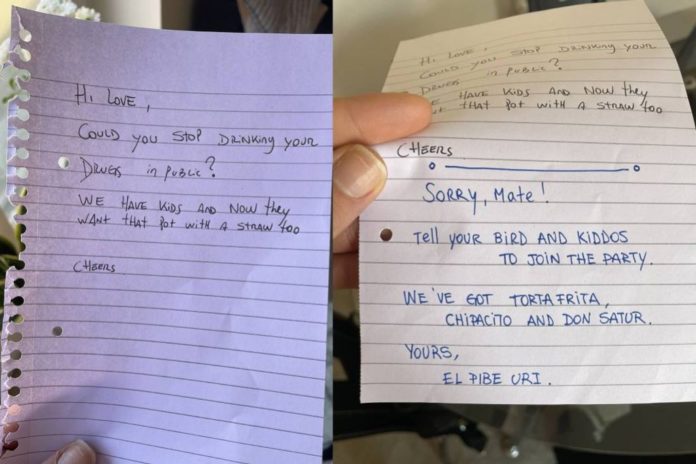 Hi LOVE,
COULD YOU STOP DRINKING YOUR
DRUGS in PUBLIC?
WE HAVE KIDS AND NOW they
WANT THAT POT WITH A STRAW TOO
CHEERS
Hi LOVE,
COULD YOU STOP DRINKING YOUR
DRUGS in PUBLIC?
WE HAVE KIDS AND NOW they
THAT POT WITH A STRAW TOO
CHEERS
SORRY, MATE!
TELL YOUR BIRD AND KIDDOS
TO JOIN THE PARTY.
WE'VE GOT TORTAFRITA,
CHIPACITO AND DON SATUR.
YOURS,
EL PIBE URI.